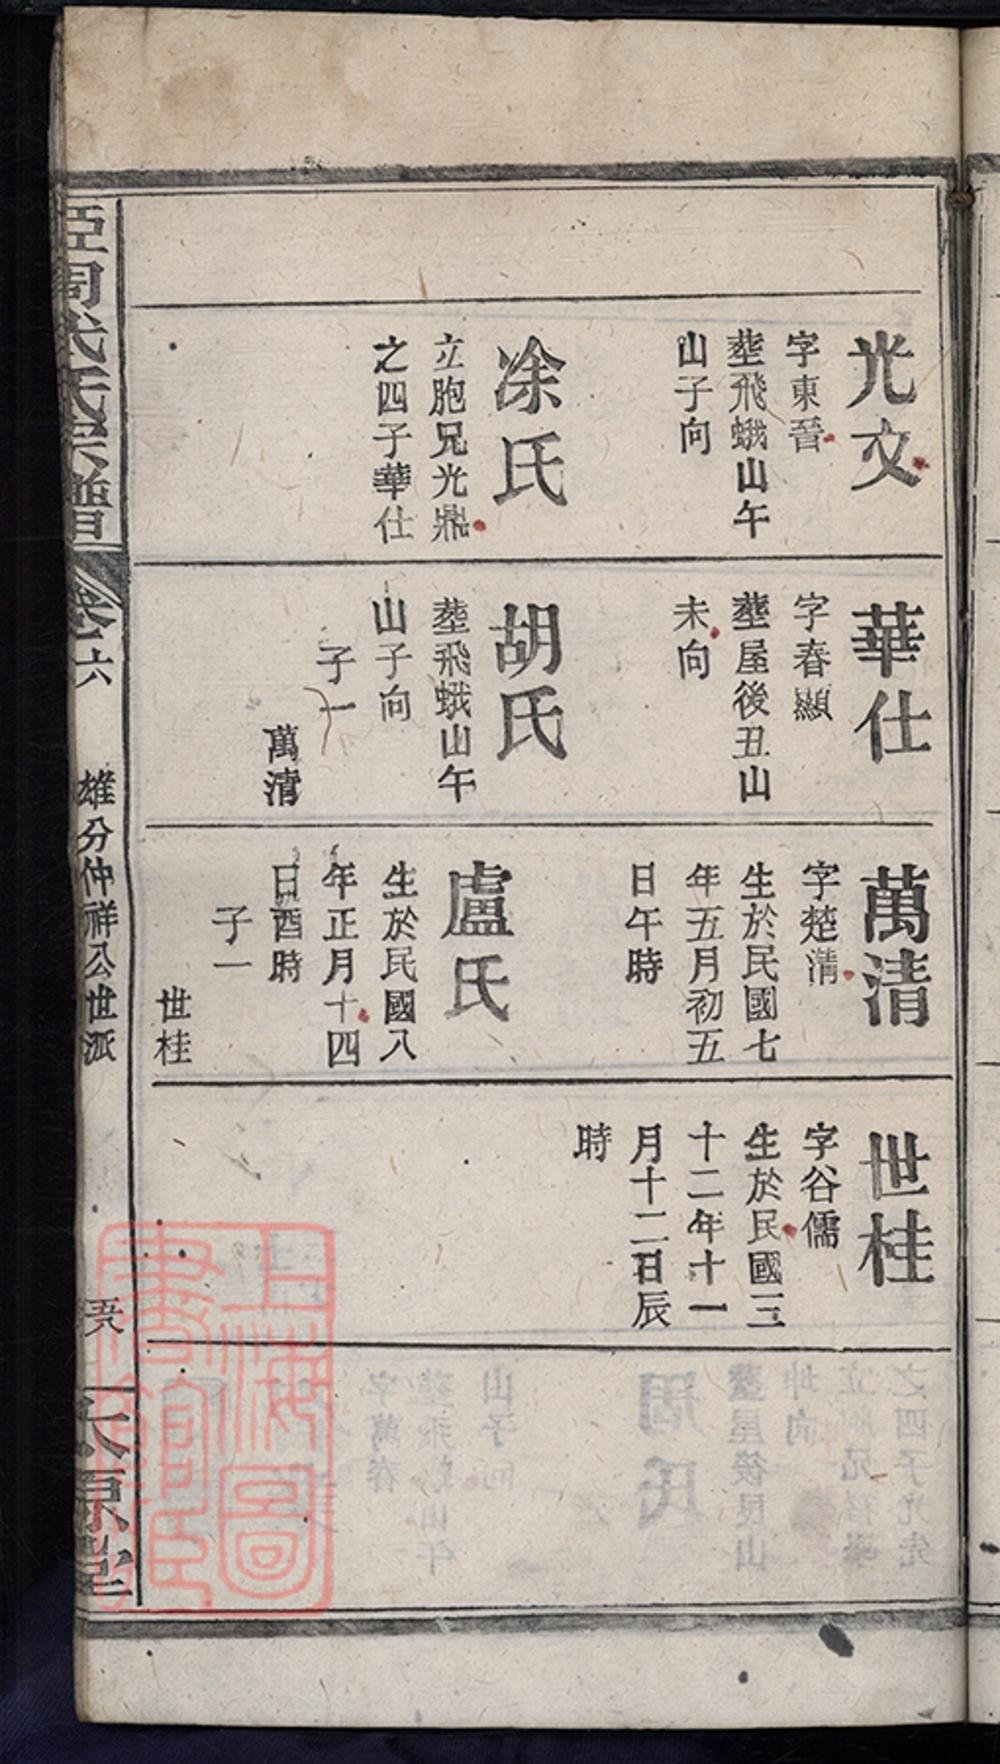 光文
字東晉
塟飛蛾山午
山子向
凃氏
立胞兄光鼎
之四子華仕
華仕
字春顯
塟屋後丑山
未向
胡氏
塟飛蛾山午
山子向
子一
萬清
萬清
字楚清
生於民國七
年五月初五
日午時
盧氏
生於民國八
年正月十四
日酉時
子一
世桂
世桂
字谷儒
生於民國三
十二年十一
月十二日辰
時
氏宗譜
卷六
雄分仲祥公世派
上海圖
書館藏